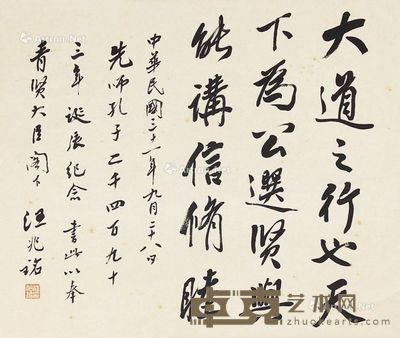 大道之行也天
下為公選賢與
能講信脩睦
中華民國三十一年九月二十八日
先師孔子二千四百九十
三年誕辰紀念 書此以奉
青賢大臣閣下 汪兆銘
艺术网
zhuokearts.com